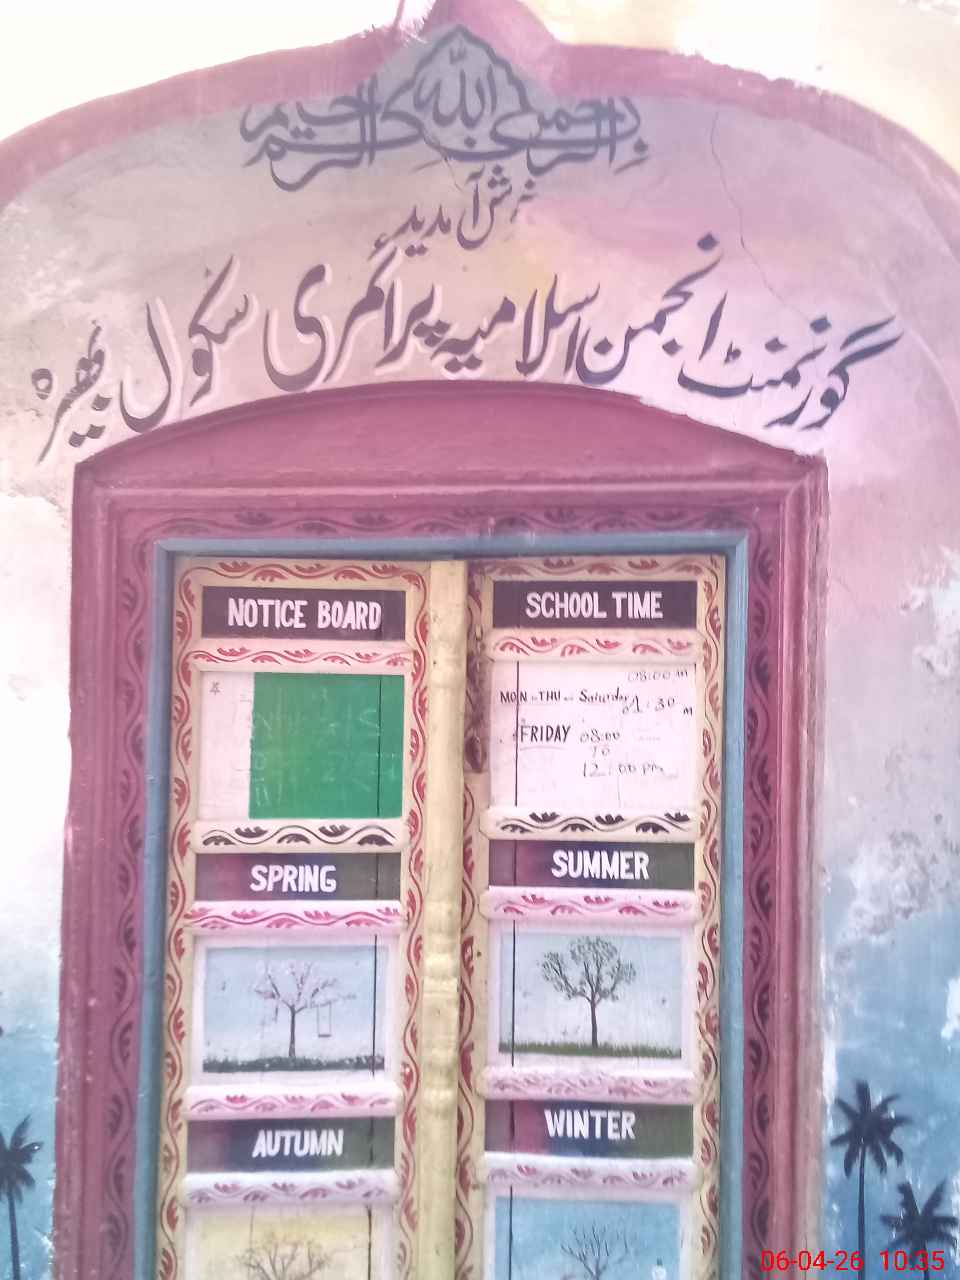 بسم الله الرحمن الرحيم
خوش آمدید
گورنمنٹ انجمن اسلامیہ پرائمری سکول بھیرہ
NOTICE BOARD
SCHOOL TIME
08:00 m
MON TO THU Saturday
01:30 m
FRIDAY 08:00
TO
12:00 pm
SPRING
SUMMER
AUTUMN
WINTER
06-04-26 10:35